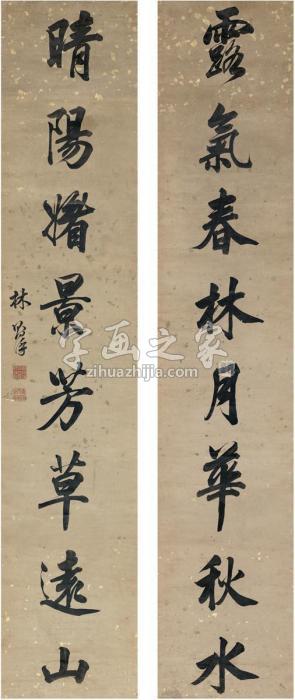 露氣春林月華秋水
晴陽媎景芳草遠山
林
字画之家
zihuazhijia.com